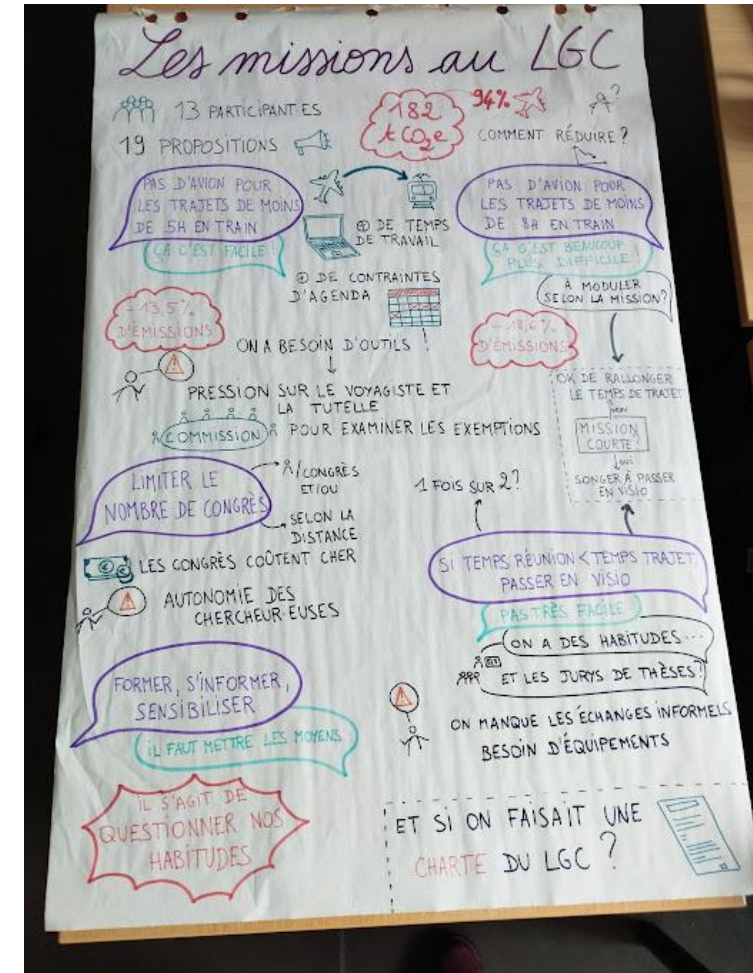 Les missions au LGC
13 PARTICIPANT·ES
19 PROPOSITIONS
182
t CO₂e
94%
?
COMMENT RÉDUIRE ?
PAS D'AVION POUR
LES TRAJETS DE MOINS
DE 5H EN TRAIN
ÇA C'EST FACILE !
⊕ DE TEMPS
DE TRAVAIL
⊕ DE CONTRAINTES
D'AGENDA
PAS D'AVION POUR
LES TRAJETS DE MOINS
DE 8H EN TRAIN
ÇA C'EST BEAUCOUP
PLUS DIFFICILE !
À MODULER
SELON LA MISSION ?
- 13,5%
D'ÉMISSIONS
- 18,6%
D'ÉMISSIONS
ON A BESOIN D'OUTILS !
PRESSION SUR LE VOYAGISTE ET
LA TUTELLE
COMMISSION POUR EXAMINER LES EXEMPTIONS
OK DE RALLONGER
LE TEMPS DE TRAJET
NON
MISSION
COURTE ?
OUI
SONGER À PASSER
EN VISIO
LIMITER LE
NOMBRE DE CONGRÈS
/CONGRÈS
ET/OU
SELON LA
DISTANCE
LES CONGRÈS COÛTENT CHER
AUTONOMIE DES
CHERCHEUR·EUSES
1 FOIS SUR 2 ?
SI TEMPS RÉUNION < TEMPS TRAJET,
PASSER EN VISIO
PAS TRÈS FACILE !
ON A DES HABITUDES...
ET LES JURYS DE THÈSES ?
ON MANQUE LES ÉCHANGES INFORMELS
BESOIN D'ÉQUIPEMENTS
FORMER, S'INFORMER,
SENSIBILISER
IL FAUT METTRE LES MOYENS
IL S'AGIT DE
QUESTIONNER NOS
HABITUDES
ET SI ON FAISAIT UNE
CHARTE DU LGC ?